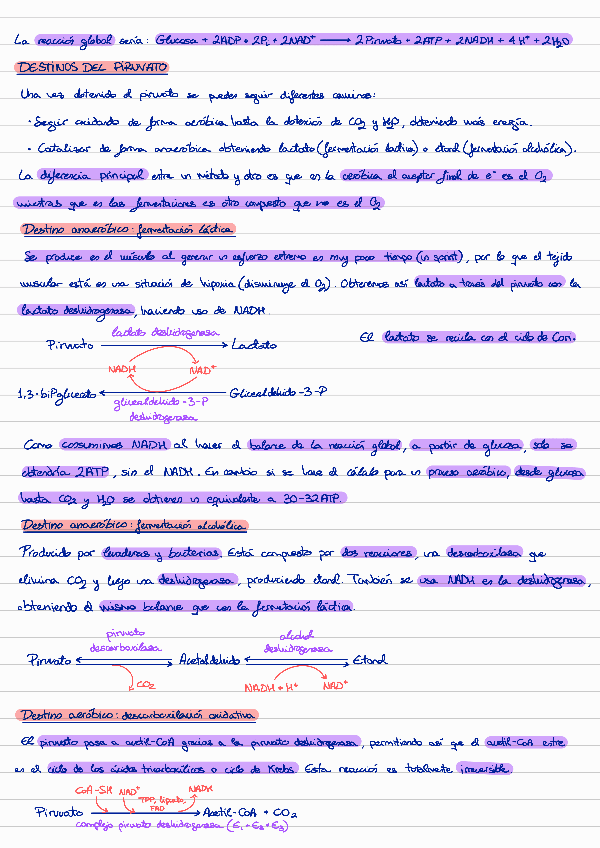 La reacción global sería: Glucosa + 2ADP + 2Pi + 2NAD⁺ ⟶ 2 Piruvato + 2ATP + 2NADH + 4H⁺ + 2H₂O
DESTINOS DEL PIRUVATO
Una vez obtenido el piruvato se pueden seguir diferentes caminos:
· Seguir oxidando de forma aeróbica hasta la obtención de CO₂ y H₂O, obteniendo más energía.
· Catalizar de forma anaeróbica obteniendo lactato (fermentación láctica) o etanol (fermentación alcohólica).
La diferencia principal entre un método y otro es que en la aeróbica el aceptor final de e⁻ es el O₂
mientras que en las fermentaciones es otro compuesto que no es el O₂
Destino anaeróbico: fermentación láctica
Se produce en el músculo al generar un esfuerzo extremo en muy poco tiempo (un sprint), por lo que el tejido
muscular está en una situación de hipoxia (disminuye el O₂). Obtenemos así lactato a través del piruvato con la
lactato deshidrogenasa, haciendo uso de NADH.
lactato deshidrogenasa
Piruvato ⟶ Lactato
El lactato se recicla con el ciclo de Cori.
NADH NAD⁺
1,3-biPglicerato ⟵ Gliceraldehído-3-P
gliceraldehído-3-P
deshidrogenasa
Como consumimos NADH al hacer el balance de la reacción global, a partir de glucosa, solo se
obtendría 2ATP, sin el NADH. En cambio si se hace el cálculo para un proceso aeróbico, desde glucosa
hasta CO₂ y H₂O se obtienen un equivalente a 30-32ATP.
Destino anaeróbico: fermentación alcohólica
Producido por levaduras y bacterias. Está compuesto por dos reacciones, una descarboxilasa que
elimina CO₂ y luego una deshidrogenasa, produciendo etanol. También se usa NADH en la deshidrogenasa,
obteniendo el mismo balance que con la fermentación láctica.
piruvato alcohol
descarboxilasa deshidrogenasa
Piruvato ⟷ Acetaldehído ⟷ Etanol
CO₂ NADH + H⁺ NAD⁺
Destino aeróbico: descarboxilación oxidativa
El piruvato pasa a acetil-CoA gracias a la piruvato deshidrogenasa, permitiendo así que el acetil-CoA entre
en el ciclo de los ácidos tricarboxílicos o ciclo de Krebs. Esta reacción es totalmente irreversible.
CoA-SH NAD⁺ NADH
TPP, lipoato,
FAD
Piruvato ⟶ Acetil-CoA + CO₂
complejo piruvato deshidrogenasa (E₁ + E₂ + E₃)